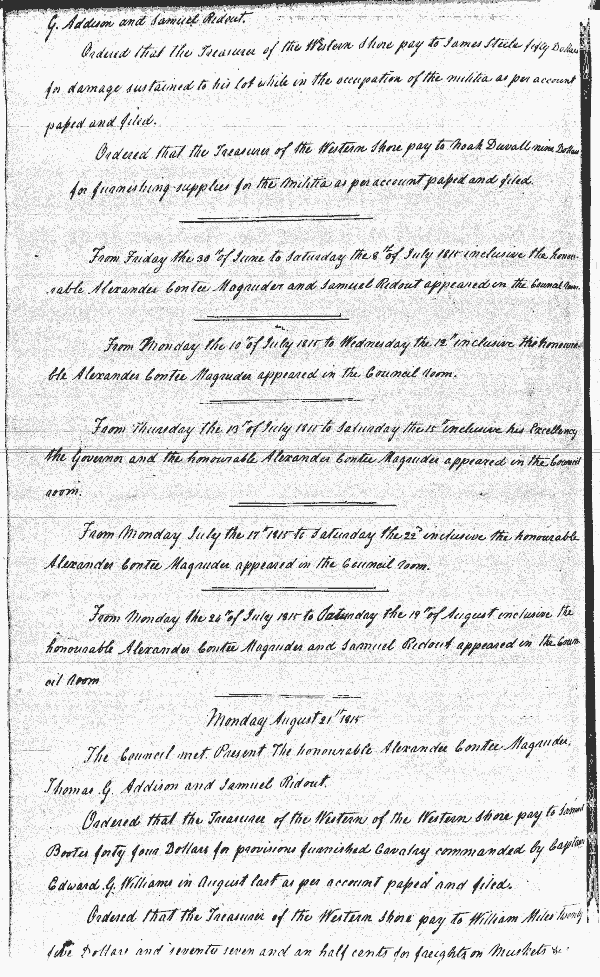 G. Addison and Samuel Ridout.
Ordered that the Treasurer of the Western Shore pay to James Steele fifty Dollars
for damage sustained to his Lot while in the occupation of the militia as per account
paſsed and filed.
Ordered that the Treasurer of the Western Shore pay to Noah Duvall nine Dollars
for furnishing supplies for the Militia as per account paſsed and filed.
From Friday the 30th of June to Saturday the 8th of July 1815 inclusive the honou-
rable Alexander Contee Magruder and Samuel Ridout appeared in the Council room.
From Monday the 10th of July 1815 to Wednesday the 12th inclusive the honoura-
ble Alexander Contee Magruder appeared in the Council room.
From Thursday the 13th of July 1815 to Saturday the 15th inclusive his Excellency
the Governor and the honourable Alexander Contee Magruder appeared in the Council
room.
From Monday July the 17th 1815 to Saturday the 22d inclusive the honourable
Alexander Contee Magruder appeared in the Council room.
From Monday the 24th of July 1815 to Saturday the 19th of August inclusive the
honourable Alexander Contee Magruder and Samuel Ridout appeared in the Coun-
cil room
Monday August 21st 1815
The Council met. Present The honourable Alexander Contee Magruder,
Thomas G. Addison and Samuel Ridout.
Ordered that the Treasurer of the Western of the Western Shore pay to Samuel
Booter forty four Dollars for provisions furnished Cavalry commanded by Captain
Edward G. Williams in August last as per account paſsed and filed.
Ordered that the Treasurer of the Western Shore pay to William Miles twenty
five Dollars and seventy seven and an half cents for freights on Muskets &c